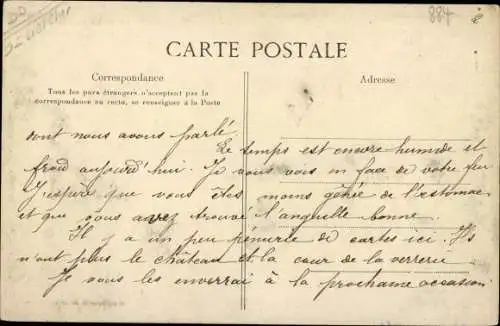 884
CARTE POSTALE
Correspondance
Adresse
Tous les pays étrangers n'acceptent pas la
correspondance au recto, se renseigner à la Poste
dont nous avons parlé.
Le temps est encore humide et
froid aujourd'hui. Je vous vois en face de votre feu
J'espère que vous êtes moins gênée de l'estomac
et que vous avez trouvé l'anguille bonne.
Il y a un peu pénurie de cartes ici. Ils
n'ont plus le château et la cour de la verrerie
Je vous les enverrai à la prochaine occasion